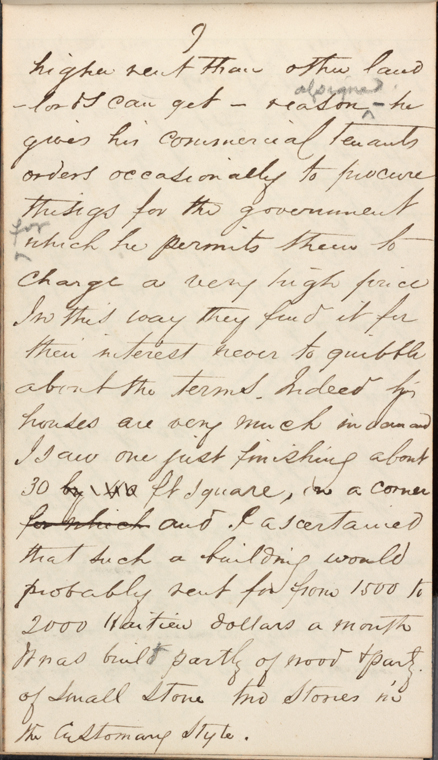 9
higher rent than other land
-lords can get - reason assigned - he
gives his commercial tenants
orders occasionally to procure
things for the government
for which he permits them to
charge a very high price
In this way they find it for
their interest never to quibble
about the terms. Indeed his
houses are very much in demand
I saw one just finishing about
30 by ft square, in a corner
for which and I ascertained
that such a building would
probably rent for from 1500 to
2000 Haitien dollars a month
It was built partly of wood & partly
of small stone two stories in
the Customary Style.